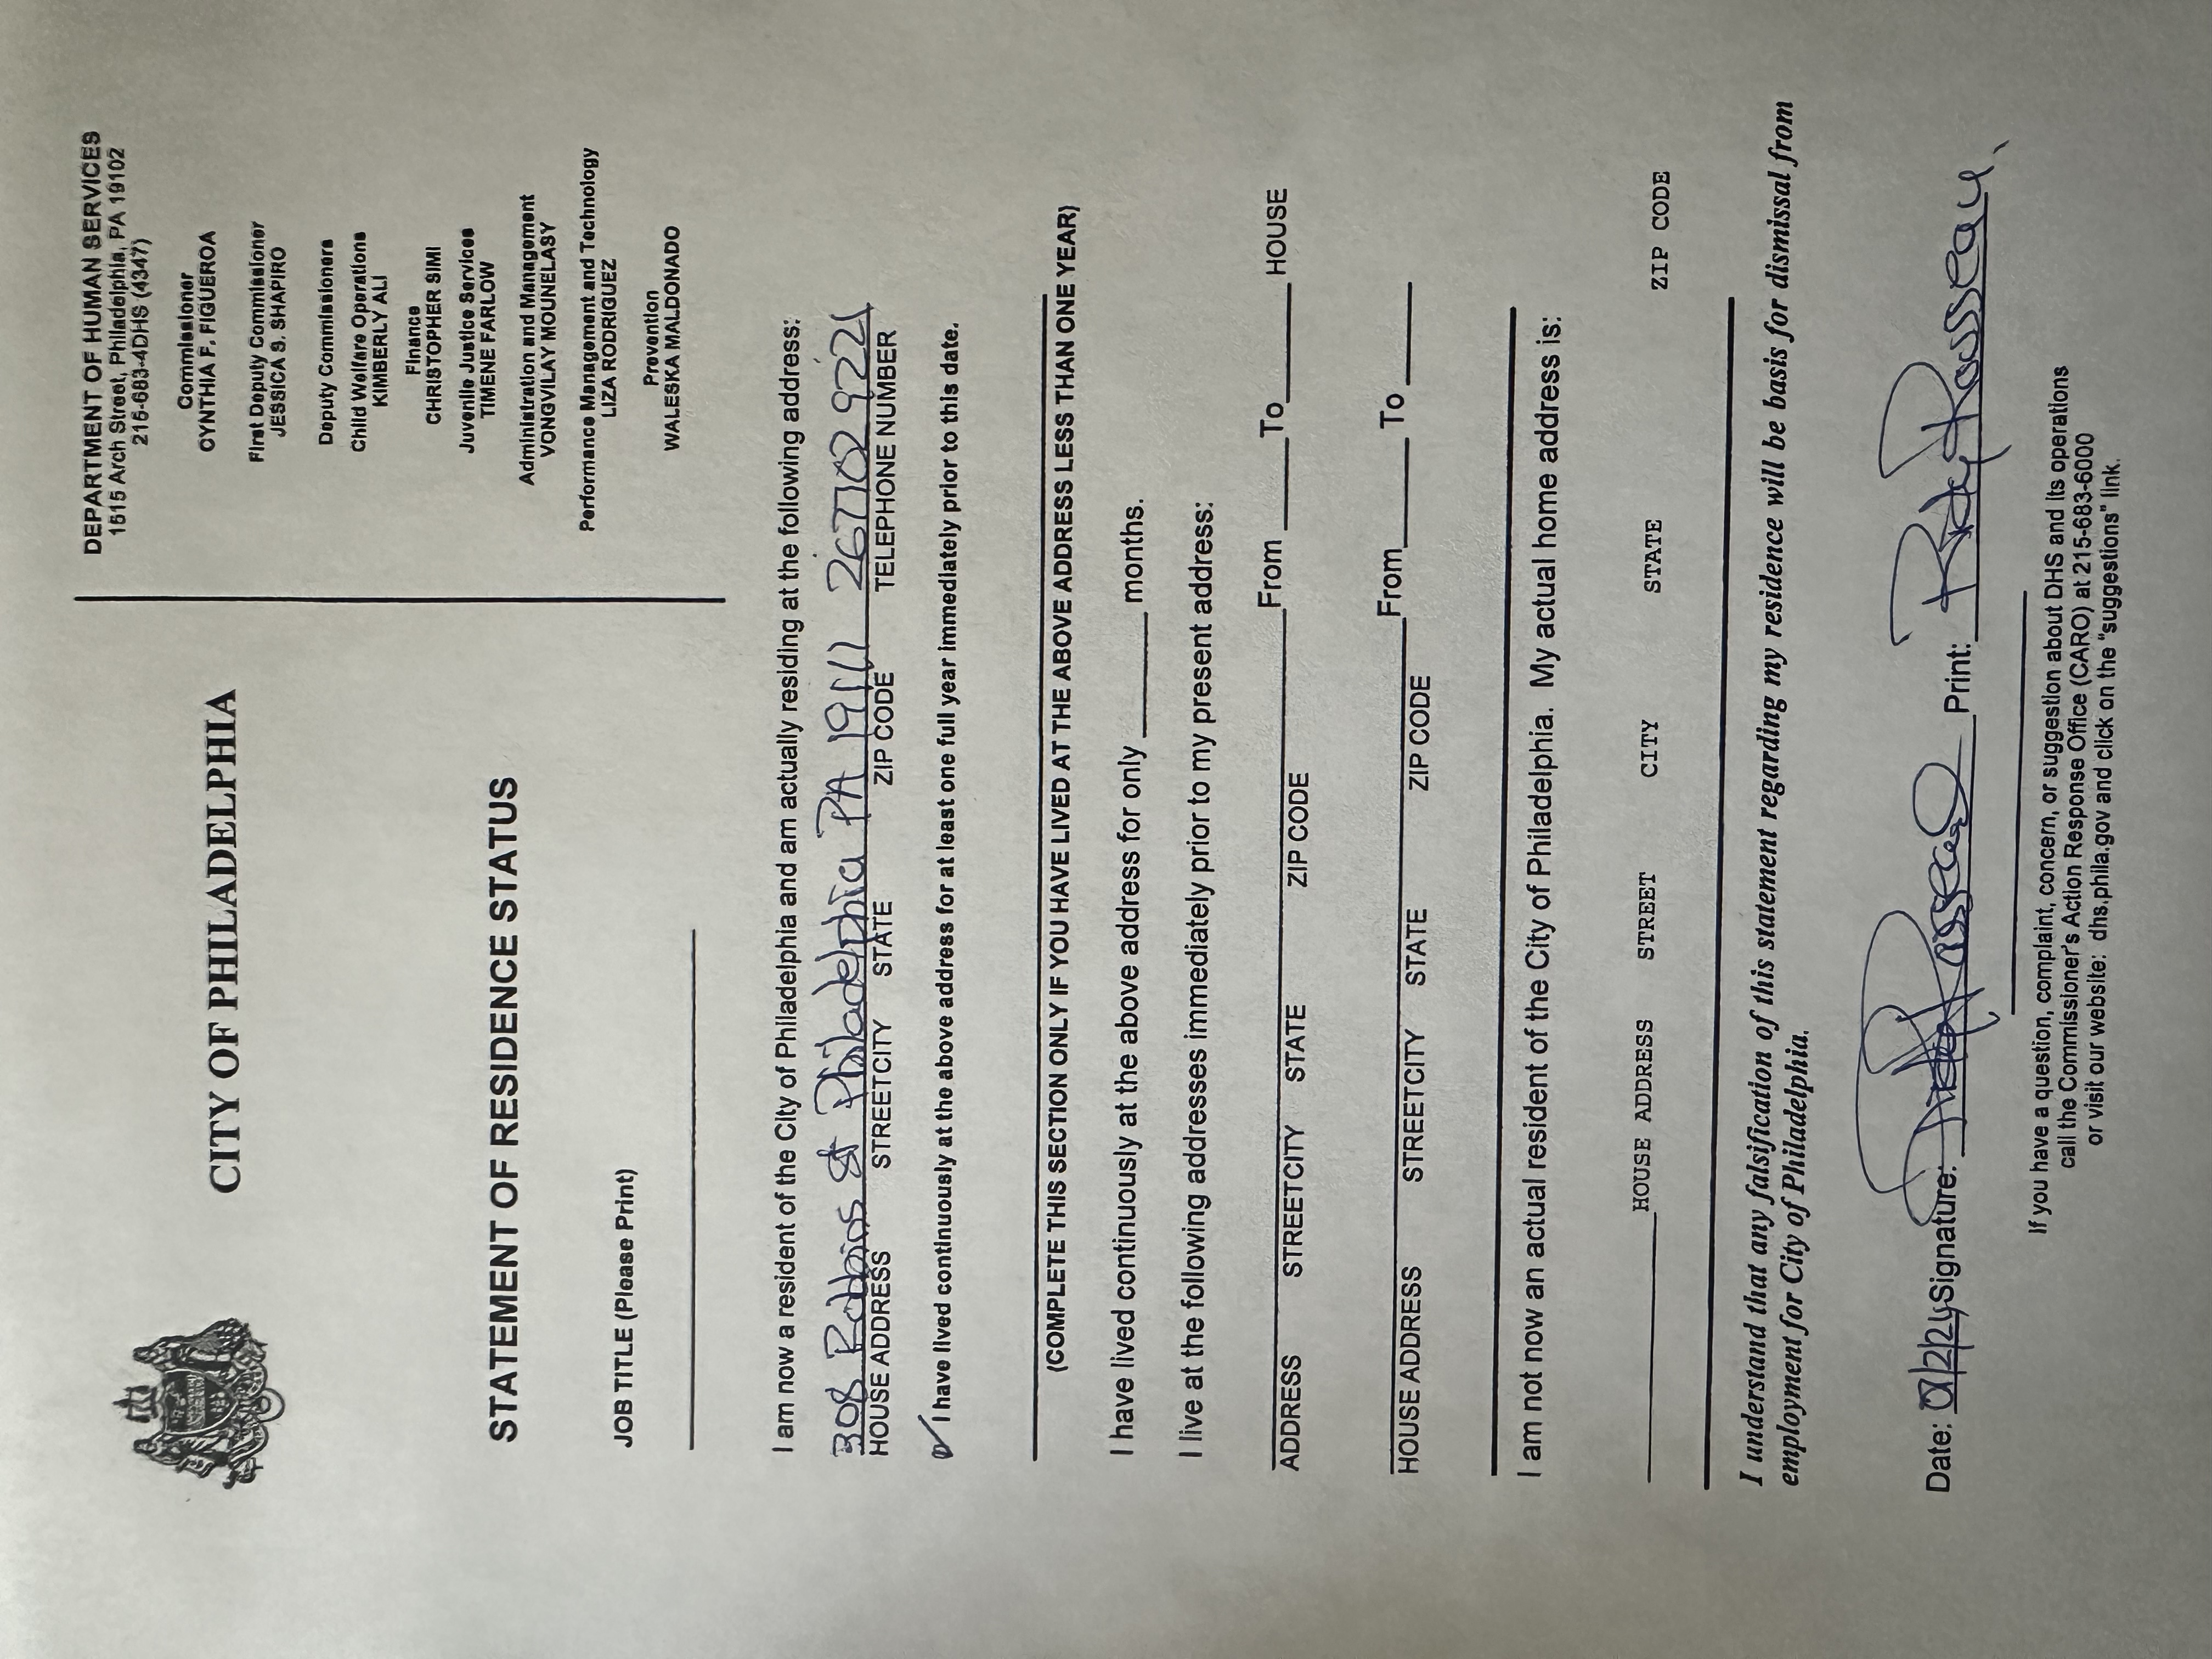 DEPARTMENT OF HUMAN SERVICES
1515 Arch Street, Philadelphia, PA 19102
215-683-4DHS (4347)
Commissioner
CYNTHIA F. FIGUEROA
First Deputy Commissioner
JESSICA S. SHAPIRO
Deputy Commissioners
Child Welfare Operations
KIMBERLY ALI
Finance
CHRISTOPHER SIMI
Juvenile Justice Services
TIMENE FARLOW
Administration and Management
VONGVILAY MOUNELASY
Performance Management and Technology
LIZA RODRIGUEZ
Prevention
WALESKA MALDONADO
CITY OF PHILADELPHIA
STATEMENT OF RESIDENCE STATUS
JOB TITLE (Please Print)
I am now a resident of the City of Philadelphia and am actually residing at the following address:
308 Robbins St Philadelphia PA 19111 2677029221
HOUSE ADDRESS STREETCITY STATE ZIP CODE TELEPHONE NUMBER
I have lived continuously at the above address for at least one full year immediately prior to this date.
(COMPLETE THIS SECTION ONLY IF YOU HAVE LIVED AT THE ABOVE ADDRESS LESS THAN ONE YEAR)
I have lived continuously at the above address for only ________ months.
I live at the following addresses immediately prior to my present address:
From ______ To ________ HOUSE
ADDRESS STREETCITY STATE ZIP CODE
From_______ To _______
HOUSE ADDRESS STREETCITY STATE ZIP CODE
I am not now an actual resident of the City of Philadelphia. My actual home address is:
HOUSE ADDRESS STREET CITY STATE ZIP CODE
I understand that any falsification of this statement regarding my residence will be basis for dismissal from
employment for City of Philadelphia.
Date: Signature: Rousseau Print: Rousseau
If you have a question, complaint, concern, or suggestion about DHS and its operations
call the Commissioner's Action Response Office (CARO) at 215-683-6000
or visit our website: dhs.phila.gov and click on the "suggestions" link.